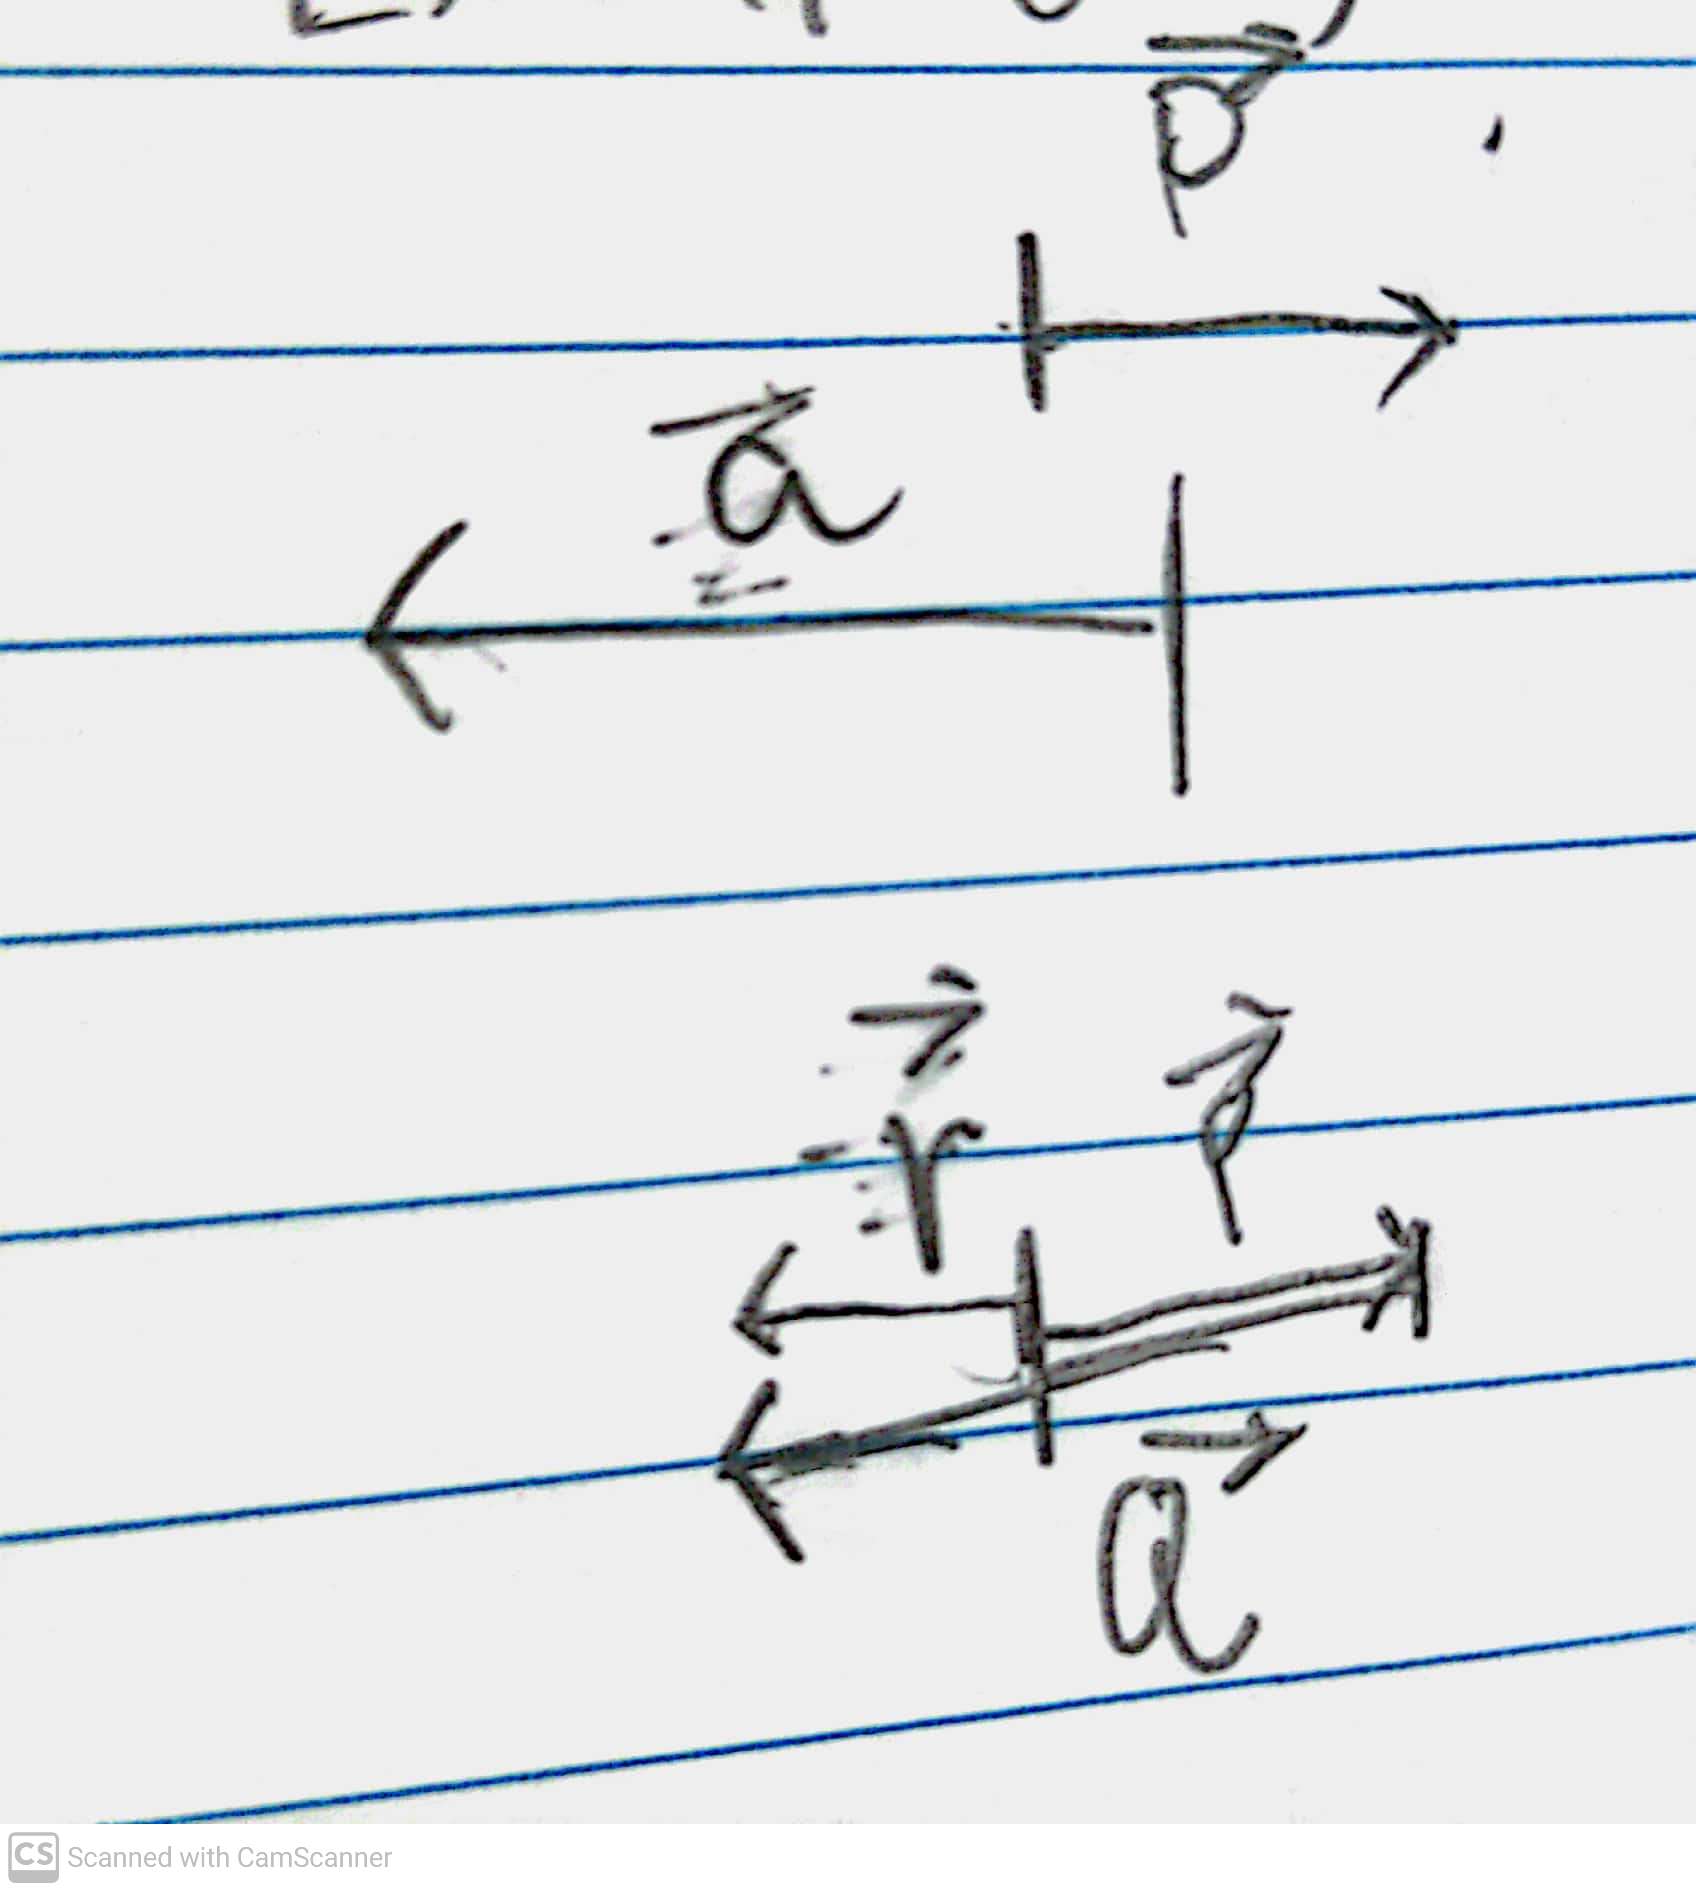 p⃗
a⃗
r⃗ p⃗
a⃗
CS Scanned with CamScanner